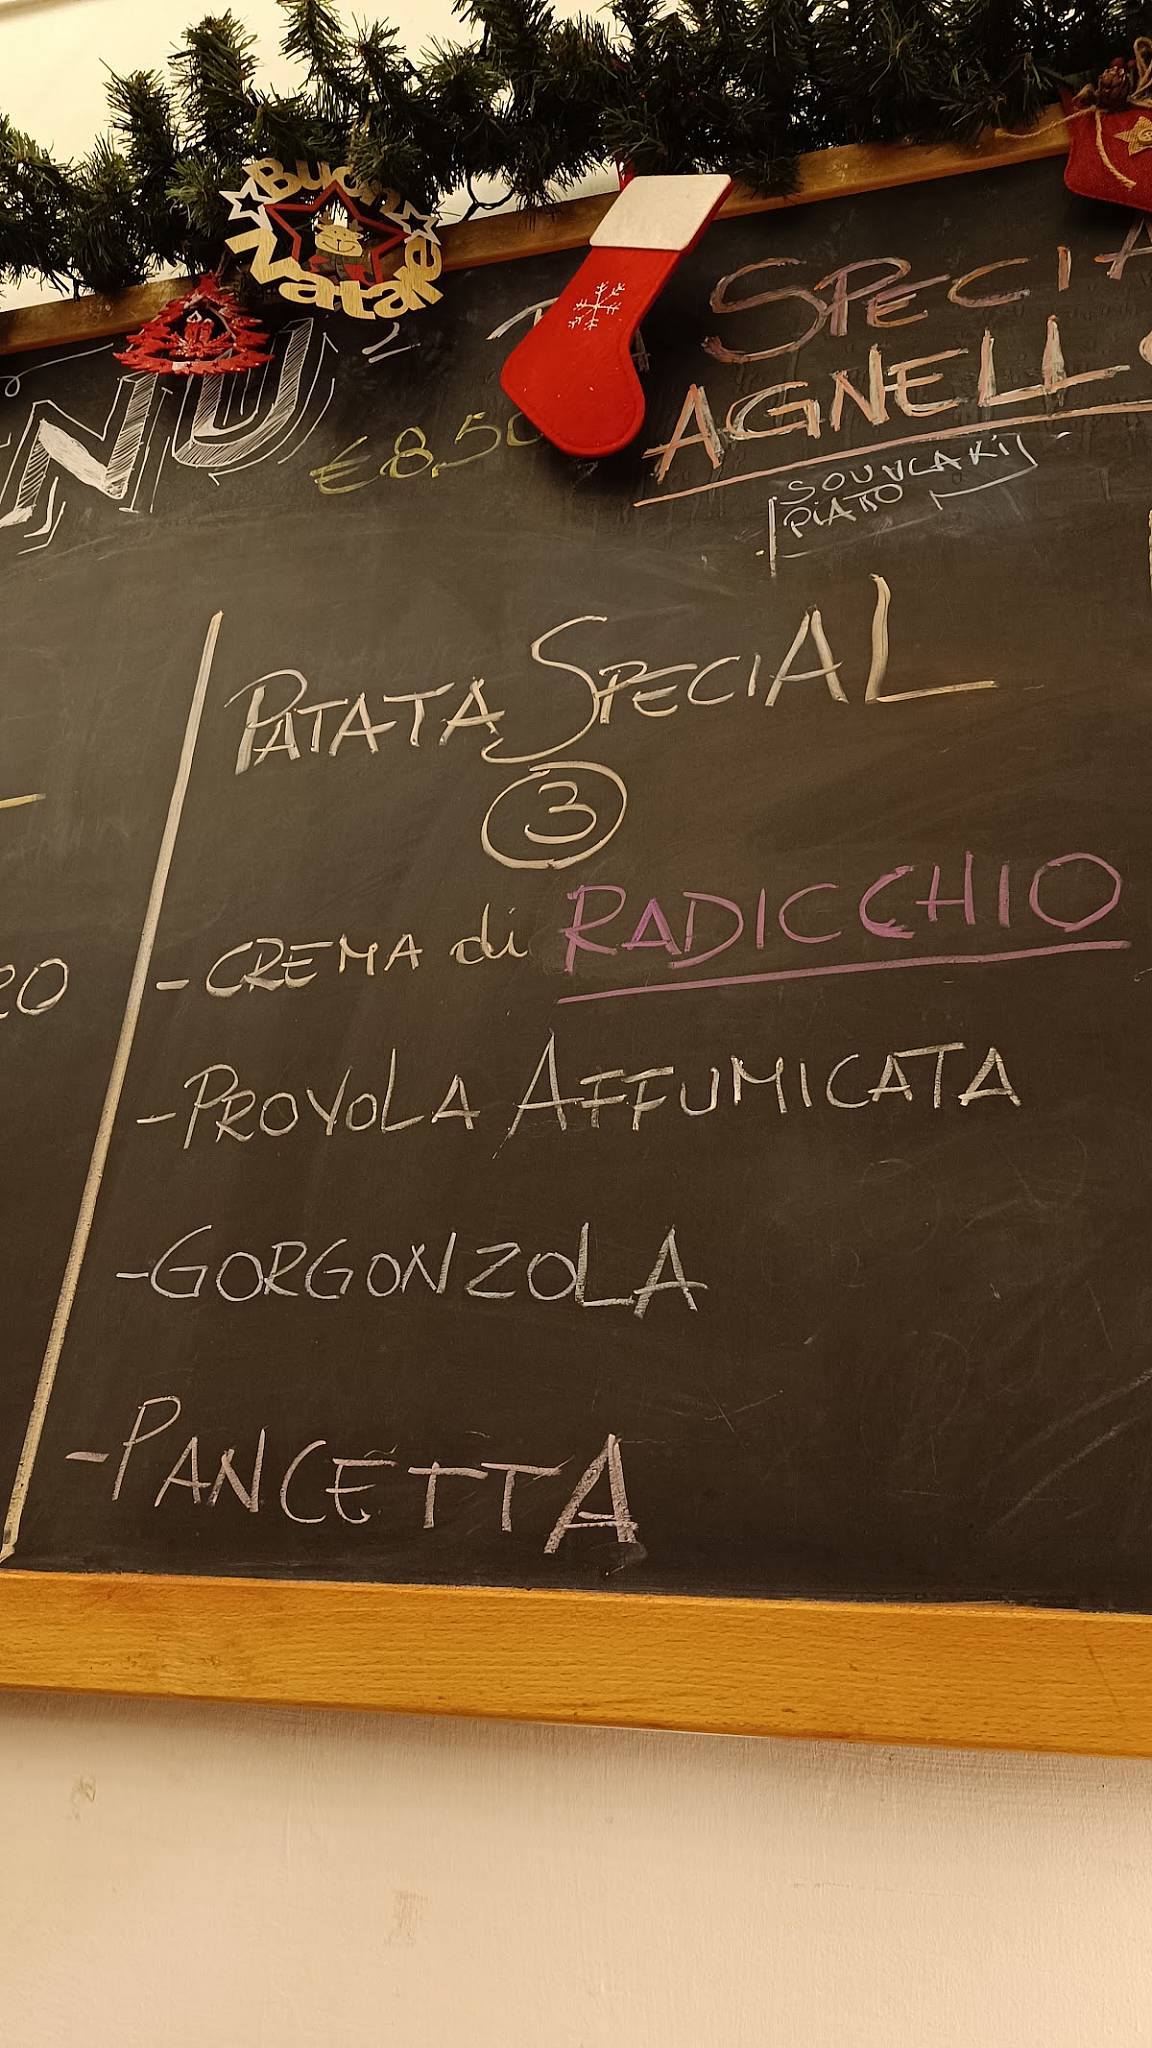 Buon
Natale
SPECIA
NU
€ 8,50
AGNELLO
SOUVLAKI
PIATTO
PATATA SPECIAL
3
- CREMA di RADICCHIO
- PROVOLA AFFUMICATA
RO
- GORGONZOLA
- PANCETTA